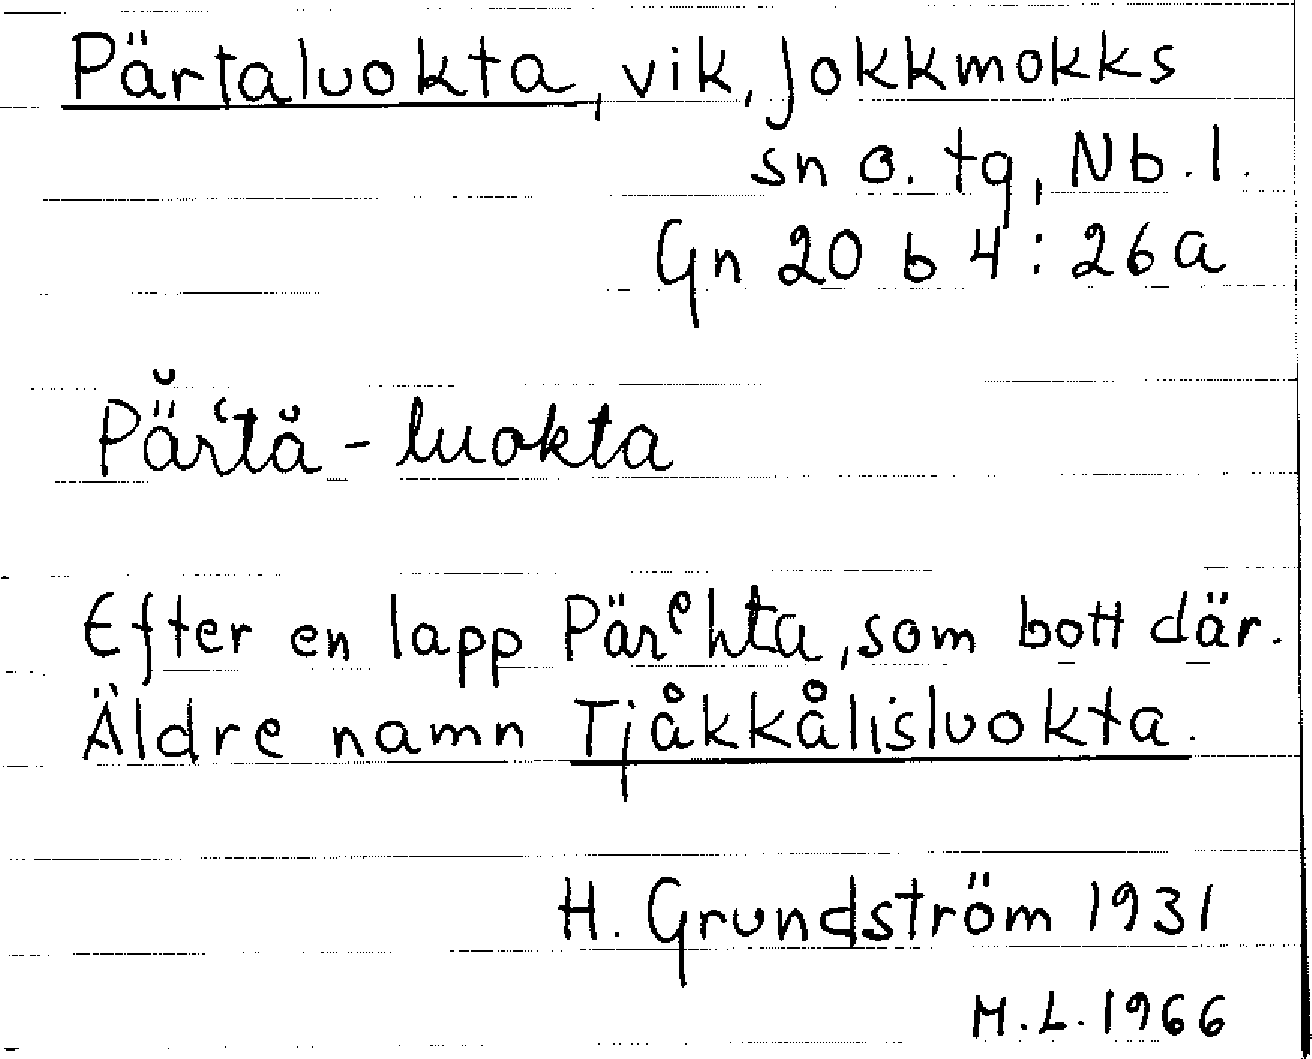 Pärtaluokta, vik, Jokkmokks
sn o. tg, Nb. l.
Gn 20 b 4 : 26a
Pä̆rʿtå̆ - luokta
Efter en lapp Pärᵉhta, som bott där.
Äldre namn Tjåkkålisluokta.
H. Grundström 1931
M.L. 1966